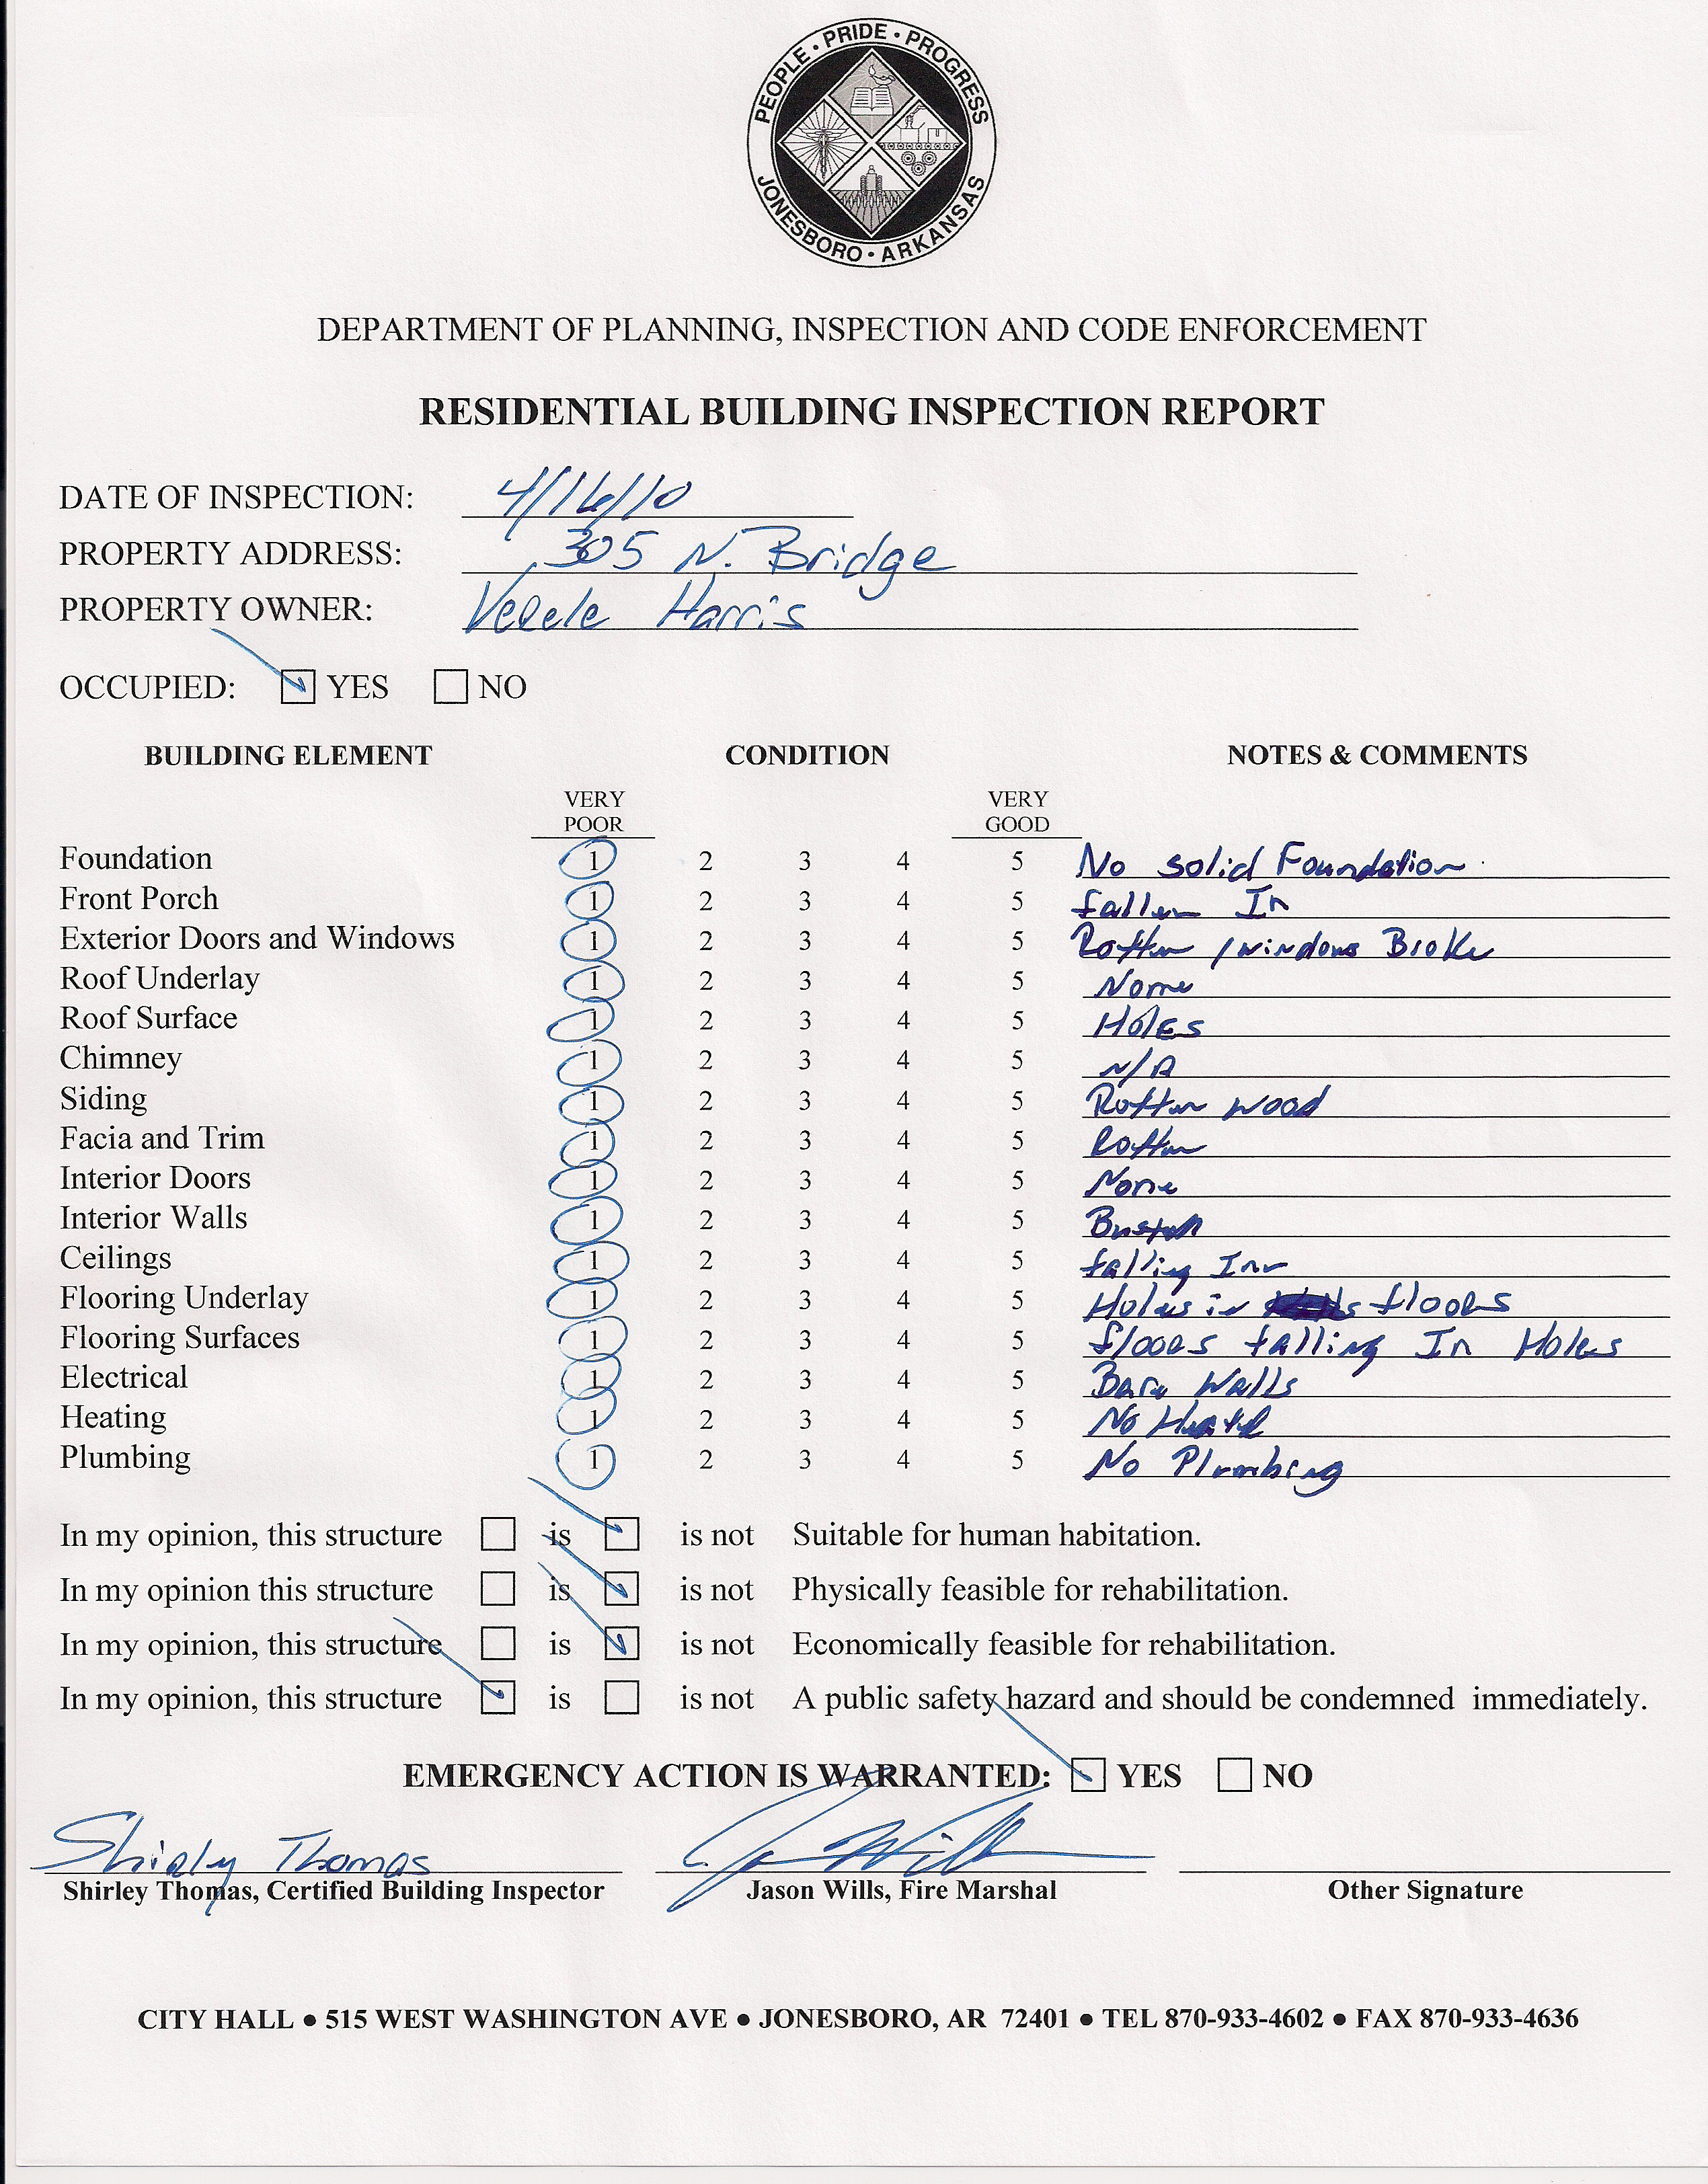 PEOPLE • PRIDE • PROGRESS
JONESBORO • ARKANSAS
DEPARTMENT OF PLANNING, INSPECTION AND CODE ENFORCEMENT
RESIDENTIAL BUILDING INSPECTION REPORT
DATE OF INSPECTION: 4/16/10
PROPERTY ADDRESS: 305 N. Bridge
PROPERTY OWNER: Harris
OCCUPIED: YES NO
BUILDING ELEMENT CONDITION NOTES & COMMENTS
VERY POOR VERY GOOD
Foundation 1 2 3 4 5 No solid Foundation
Front Porch 1 2 3 4 5 fallen In
Exterior Doors and Windows 1 2 3 4 5 Rotten / windows Broke
Roof Underlay 1 2 3 4 5 None
Roof Surface 1 2 3 4 5 Holes
Chimney 1 2 3 4 5 N/A
Siding 1 2 3 4 5 Rotten wood
Facia and Trim 1 2 3 4 5 Rotten
Interior Doors 1 2 3 4 5 None
Interior Walls 1 2 3 4 5
Ceilings 1 2 3 4 5 falling In
Flooring Underlay 1 2 3 4 5 Holes in floors
Flooring Surfaces 1 2 3 4 5 floors falling In Holes
Electrical 1 2 3 4 5 Bare Walls
Heating 1 2 3 4 5 No
Plumbing 1 2 3 4 5 No Plumbing
In my opinion, this structure is is not Suitable for human habitation.
In my opinion this structure is is not Physically feasible for rehabilitation.
In my opinion, this structure is is not Economically feasible for rehabilitation.
In my opinion, this structure is is not A public safety hazard and should be condemned immediately.
EMERGENCY ACTION IS WARRANTED: YES NO
Shirley Thomas
Shirley Thomas, Certified Building Inspector Jason Wills, Fire Marshal Other Signature
CITY HALL ● 515 WEST WASHINGTON AVE ● JONESBORO, AR 72401 ● TEL 870-933-4602 ● FAX 870-933-4636